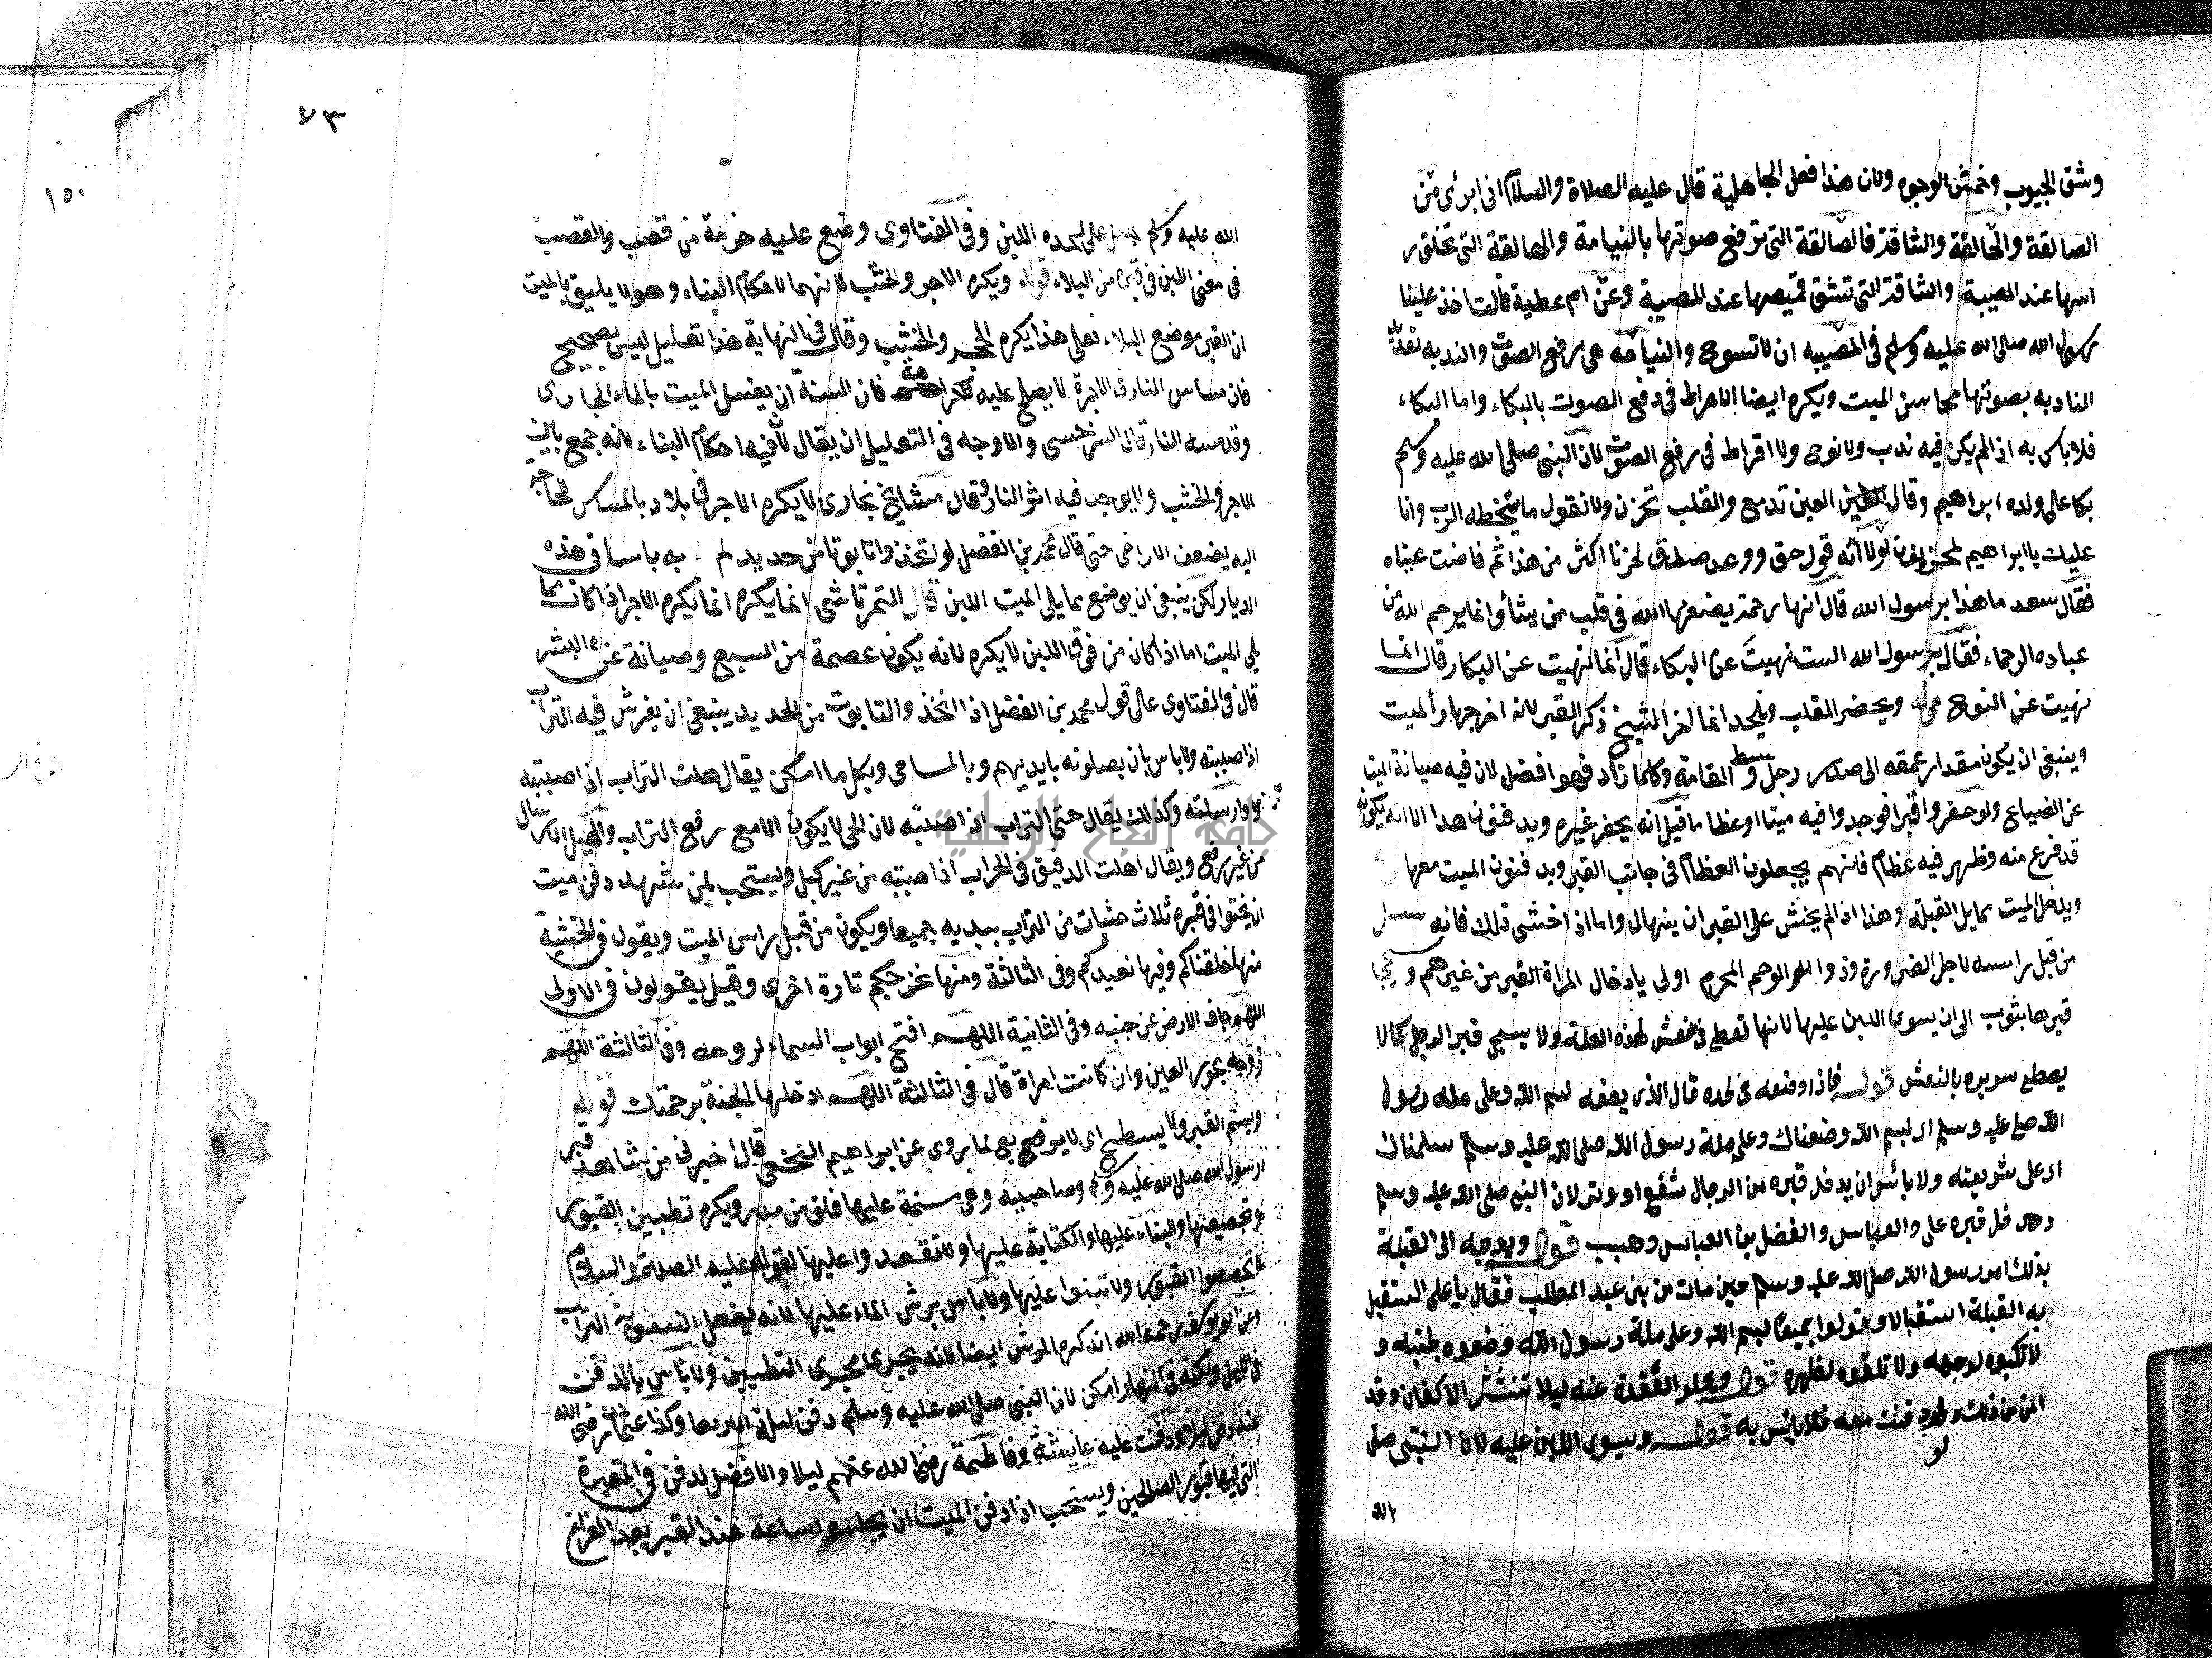 وشق الجيوب وخمش الوجوه ولان هذا فعل الجاهلية قال عليه الصلاة والسلام انى ابرئ من
الصالقة والحالقة والشاقة فالصالقة التى ترفع صوتها بالنياحة والحالقة التى تحلق ر
اسها عند المصيبة والشاقة التى تشق قميصها عند المصيبة وعن ام عطية قالت اخذ علينا
رسول الله صلى الله عليه وسلم فى المصيبه ان لا تنوح والنياحة هى رفع الصوت والندبه تعديد
النادبه بصوتها محاسن الميت ويكره ايضا الافراط فى رفع الصوت بالبكاء واما البكاء
فلا باس به اذ الم يكن فيه ندب ولا نوح ولا افراط فى رفع الصوت لان النبى صلى الله عليه وسلم
بكا على ولده ابراهيم وقال العين تدمع والقلب تحزن ولا نقول ما يسخطه الرب وانا
عليك يا ابراهيم لمحزونون لولا انه قول حق ووعد صدق لحزنا اكثر من هذا ثم فاضت عيناه
فقال سعد ما هذا يرسول الله قال انها رحمة يضعها الله فى قلب من يشاء وانما يرحم الله من
عباده الرحماء فقال يرسول الله الست نهيت عن البكاء قال انما نهيت عن البكاء قال انما
نهيت عن النوح ويحضر القلب ويلحد انما اخر الشيخ ذكر القبر لانه اخر جهاز الميت
وينبغى ان يكون مقدار عمقه الى صدر رجل وسط القامة وكلما زاد فهو افضل لان فيه صيانة الميت
عن الضياع ولو حفروا قبرا فوجدوا فيه ميتا او عظاما قيل انه يحفر غيره ويدفنون هذا الا انه يكون
قد فرغ منه وظهر فيه عظام فانهم يجعلون العظام فى جانب القبر ويدفنون الميت معها
ويدخل الميت مما يلى القبلة وهذا اذ الم يخش على القبر ان ينهال واما اذ اخشى ذلك فانه يسل
من قبل راسه لاجل الضرورة وذوا الرحم المحرم اولى بادخال المراة القبر من غيرهم ويسجى
قبرها بثوب الى ان يسوى اللبن عليها لانها تغطى فى نعش لهذه العلة ولا يسجى قبر الرجل كما لا
يغطى سريره بالنعش قوله فاذا وضعه فى لحده قال الذى يضعه بسم الله وعلى ملة رسول
الله صلى عليه وسلم اى بسم الله وضعناك وعلى ملة رسول الله صلى الله عليه وسلم سلمناك
اى على شريعته ولا باس ان يدخل قبره من الرجال شفع او وتر لان النبى صلى الله عليه وسلم
دخل قبره على والعباس والفضل بن العباس وصهيب قوله ويوجه الى القبلة
بذلك امر رسول الله صلى الله عليه وسلم حين مات من بنى عبد المطلب فقال يا على استقبل
به القبلة استقبالا وقولوا جميعا بسم الله وعلى ملة رسول الله وضعوه لجنبه و
لا تكبوه لوجهه ولا تلقوه لظهره قوله وتحل العقدة عنه ليلا تنتشر الاكفان وقد
امن من ذلك ولو دفنت معه فلا باس به قوله ويسوى اللبن عليه لان النبى صلى
الله
٧٣
١٥٠
الله عليه وسلم على لحده اللبن وفى الفتاوى وضع عليه حزمة من قصب والقصب
فى معنى اللبن فى قربه من البلاء قوله ويكره الاجر والخشب لانهما لاحكام البناء وهو لا يليق بالميت
ان القبر موضع البلاء فعلى هذا يكره الحجر والخشب وقال فى النهاية هذا تعليل ليس بصحيح
فان مساس النار فى الاجرة لا يصلح عليه للكراهة فان السنة ان يغسل الميت بالماء الحار وى
وقد مسه النار قال السرخسى والاوجه فى التعليل ان يقال لان فيه احكام البناء لانه جمع بين
الاجر والخشب ولا يوجد فيه اثر النار وقال مشايخ بخارى لا يكره الاجر فى بلادنا لمساس الحاجة
اليه لضعف الاراضى حتى قال محمد بن الفضل لو اتخذوا تابوتا من حديد لم به باسا فى هذه
الديار لكن ينبغى ان يوضع مما يلى الميت اللبن قال التمرتاشى انما يكره انما يكره الاجر اذا كان مما
يلى الميت اما اذا كان من فوق اللبن لا يكره لانه يكون عصمة من السبع وصيانة عن النبش
قال فى الفتاوى على قول محمد بن الفضل اذا اتخذ والتابوت من الحديد ينبغى ان يفرش فيه التراب
اذا صببته ولا باس بان يهيلونه بايديهم وبالمساحى وبكل ما امكن يقال هلت التراب اذا صببته
وارسلته وكذلك يقال حثى التراب اذا صببته لان الحثى لا يكون الا مع رفع التراب والهيل الارسال
من غير رفع ويقال اهلت الدقيق فى الجراب اذا صببته من غير كيل ويستحب لمن شهد دفن ميت
ان يحثوا فى قبره ثلاث حثيات من التراب بيديه جميعا ويكون من قبل راس الميت ويقول فى الحثية
منها خلقناكم وفيها نعيدكم وفى الثالثة ومنها نخرجكم تارة اخرى وقيل يقولون فى الاولى
اللهم جاف الارض عن جنبه وفى الثانية اللهم افتح ابواب السماء لروحه وفى الثالثة اللهم
زوجه بحور العين وان كانت امراة قال فى الثالثة اللهم ادخلها الجنة برحمتك قوله
ويسنم القبر ولا يسطح اى لا يربع لما روى عن ابراهيم النخعى قال اخبرنى من شاهد قبر
رسول الله صلى الله عليه وسلم وصاحبيه وهى مسنمة عليها فلق من مدر ويكره تطيين القبور
وتجصيصها والبناء عليها والكتابة عليها ولا تقعدوا عليها لقوله عليه الصلاة والسلام
لا تجصصوا القبور ولا تبنوا عليها ولا باس برش الماء عليها لانه يفعل لتسوية التراب
وعن ابو يوسف رحمه الله انه كره الرش ايضا لانه يجرى مجرى التطيين ولا باس بالدفن
فى الليل ولكنه فى النهار امكن لان النبى صلى الله عليه وسلم دفن ليلة الاربعا وكذا عثمان رضى الله
عنه دفن ليلا ودفنت عليه عايشة وفاطمة رضى الله عنهم ليلا والافضل الدفن فى المقبرة
التى فيها قبور الصالحين ويستحب اذا دفن الميت ان يجلسوا ساعة عند القبر بعد الفراغ
جامعة النجاح الوطنية